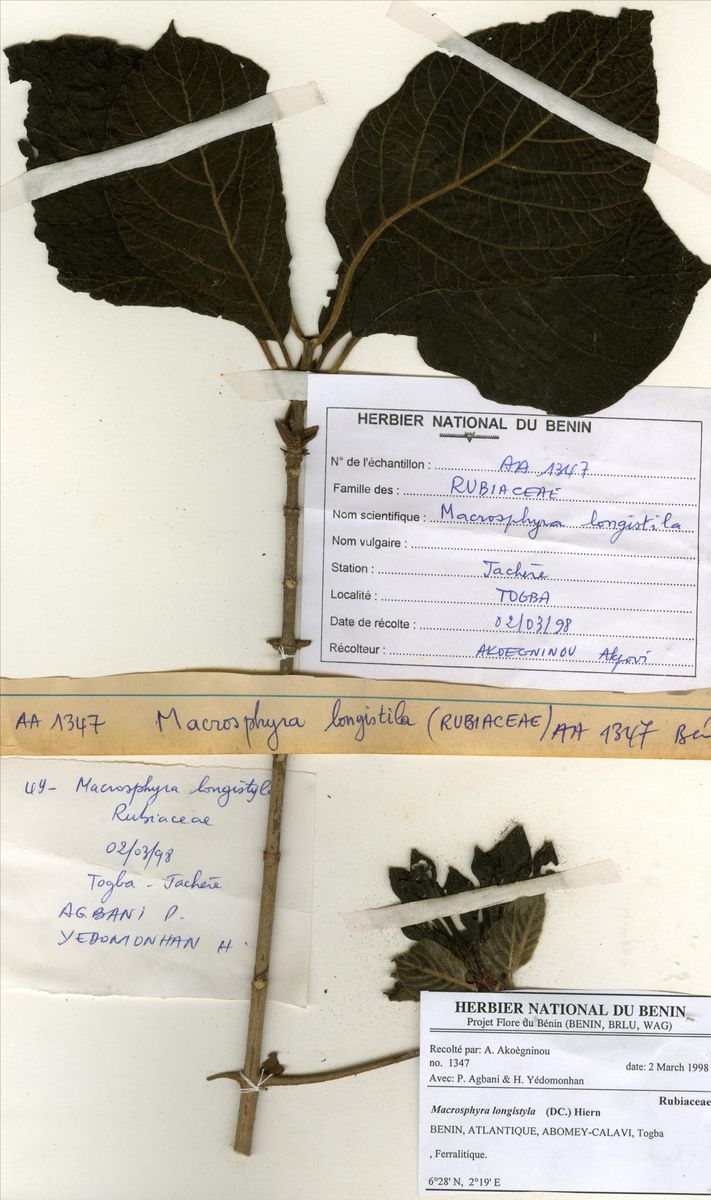 HERBIER NATIONAL DU BENIN
N° de l'échantillon : AA 1347
Famille des : RUBIACEAE
Nom scientifique : Macrosphyra longistila
Nom vulgaire :
Station : Jachère
Localité : TOGBA
Date de récolte : 02/03/98
Récolteur : AKOEGNINOU Akpovi
AA 1347 Macrosphyra longistila (RUBIACEAE) AA 1347 Bén
49- Macrosphyra longistyla
Rubiaceae
02/03/98
Togba - Jachère
AGBANI P.
YEDOMONHAN H.
HERBIER NATIONAL DU BENIN
Projet Flore du Bénin (BENIN, BRLU, WAG)
Recolté par: A. Akoègninou
no. 1347 date: 2 March 1998
Avec: P. Agbani & H. Yédomonhan
Rubiaceae
Macrosphyra longistyla (DC.) Hiern
BENIN, ATLANTIQUE, ABOMEY-CALAVI, Togba
, Ferralitique.
6°28' N, 2°19' E